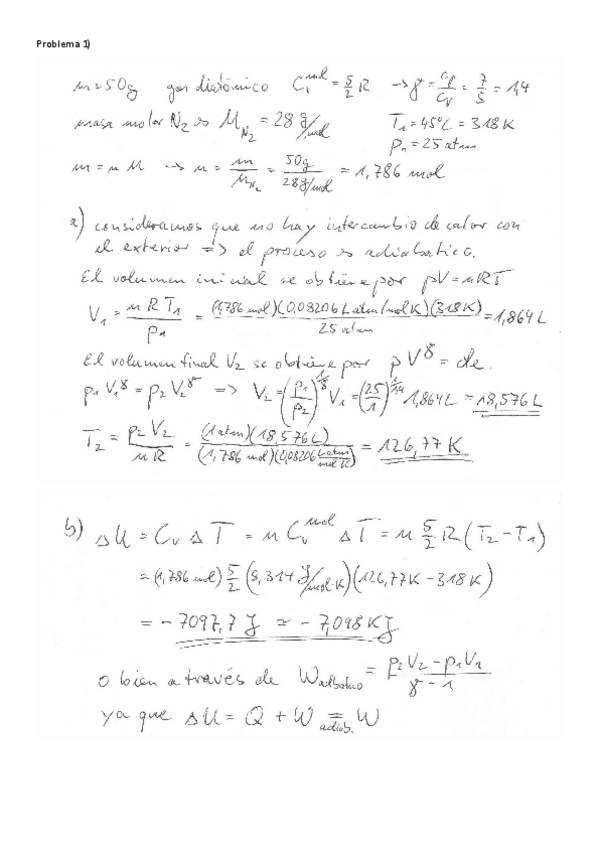 Problema 1)
m=50g gas diatómico C_v^mol = 5/2 R → γ = Cp/Cv = 7/5 = 1,4
masa molar N₂ es M_N₂ = 28 g/mol T₁ = 45°C = 318 K
p₁ = 25 atm
m = n M → n = m/M_N₂ = 50g/28g/mol = 1,786 mol
a) consideramos que no hay intercambio de calor con
el exterior => el proceso es adiabático.
El volumen inicial se obtiene por pV = nRT
V₁ = nRT₁/p₁ = (1,786 mol)(0,08206 L atm/mol K)(318K)/25 atm = 1,864 L
El volumen final V₂ se obtiene por pV^γ = cte.
p₁V₁^γ = p₂V₂^γ => V₂ = (p₁/p₂)^(1/γ) V₁ = (25/1)^(1/1,4) 1,864L = 18,576 L
T₂ = p₂V₂/nR = (1 atm)(18,576 L)/(1,786 mol)(0,08206 L atm/mol K) = 126,77 K
b) ΔU = C_v ΔT = n C_v^mol ΔT = n 5/2 R (T₂ - T₁)
= (1,786 mol) 5/2 (8,314 J/mol·K)(126,77K - 318K)
= - 7097,7 J ≃ - 7,098 KJ
o bien a través de W_adiabático = p₂V₂ - p₁V₁/γ - 1
ya que ΔU = Q + W =_adiab. W